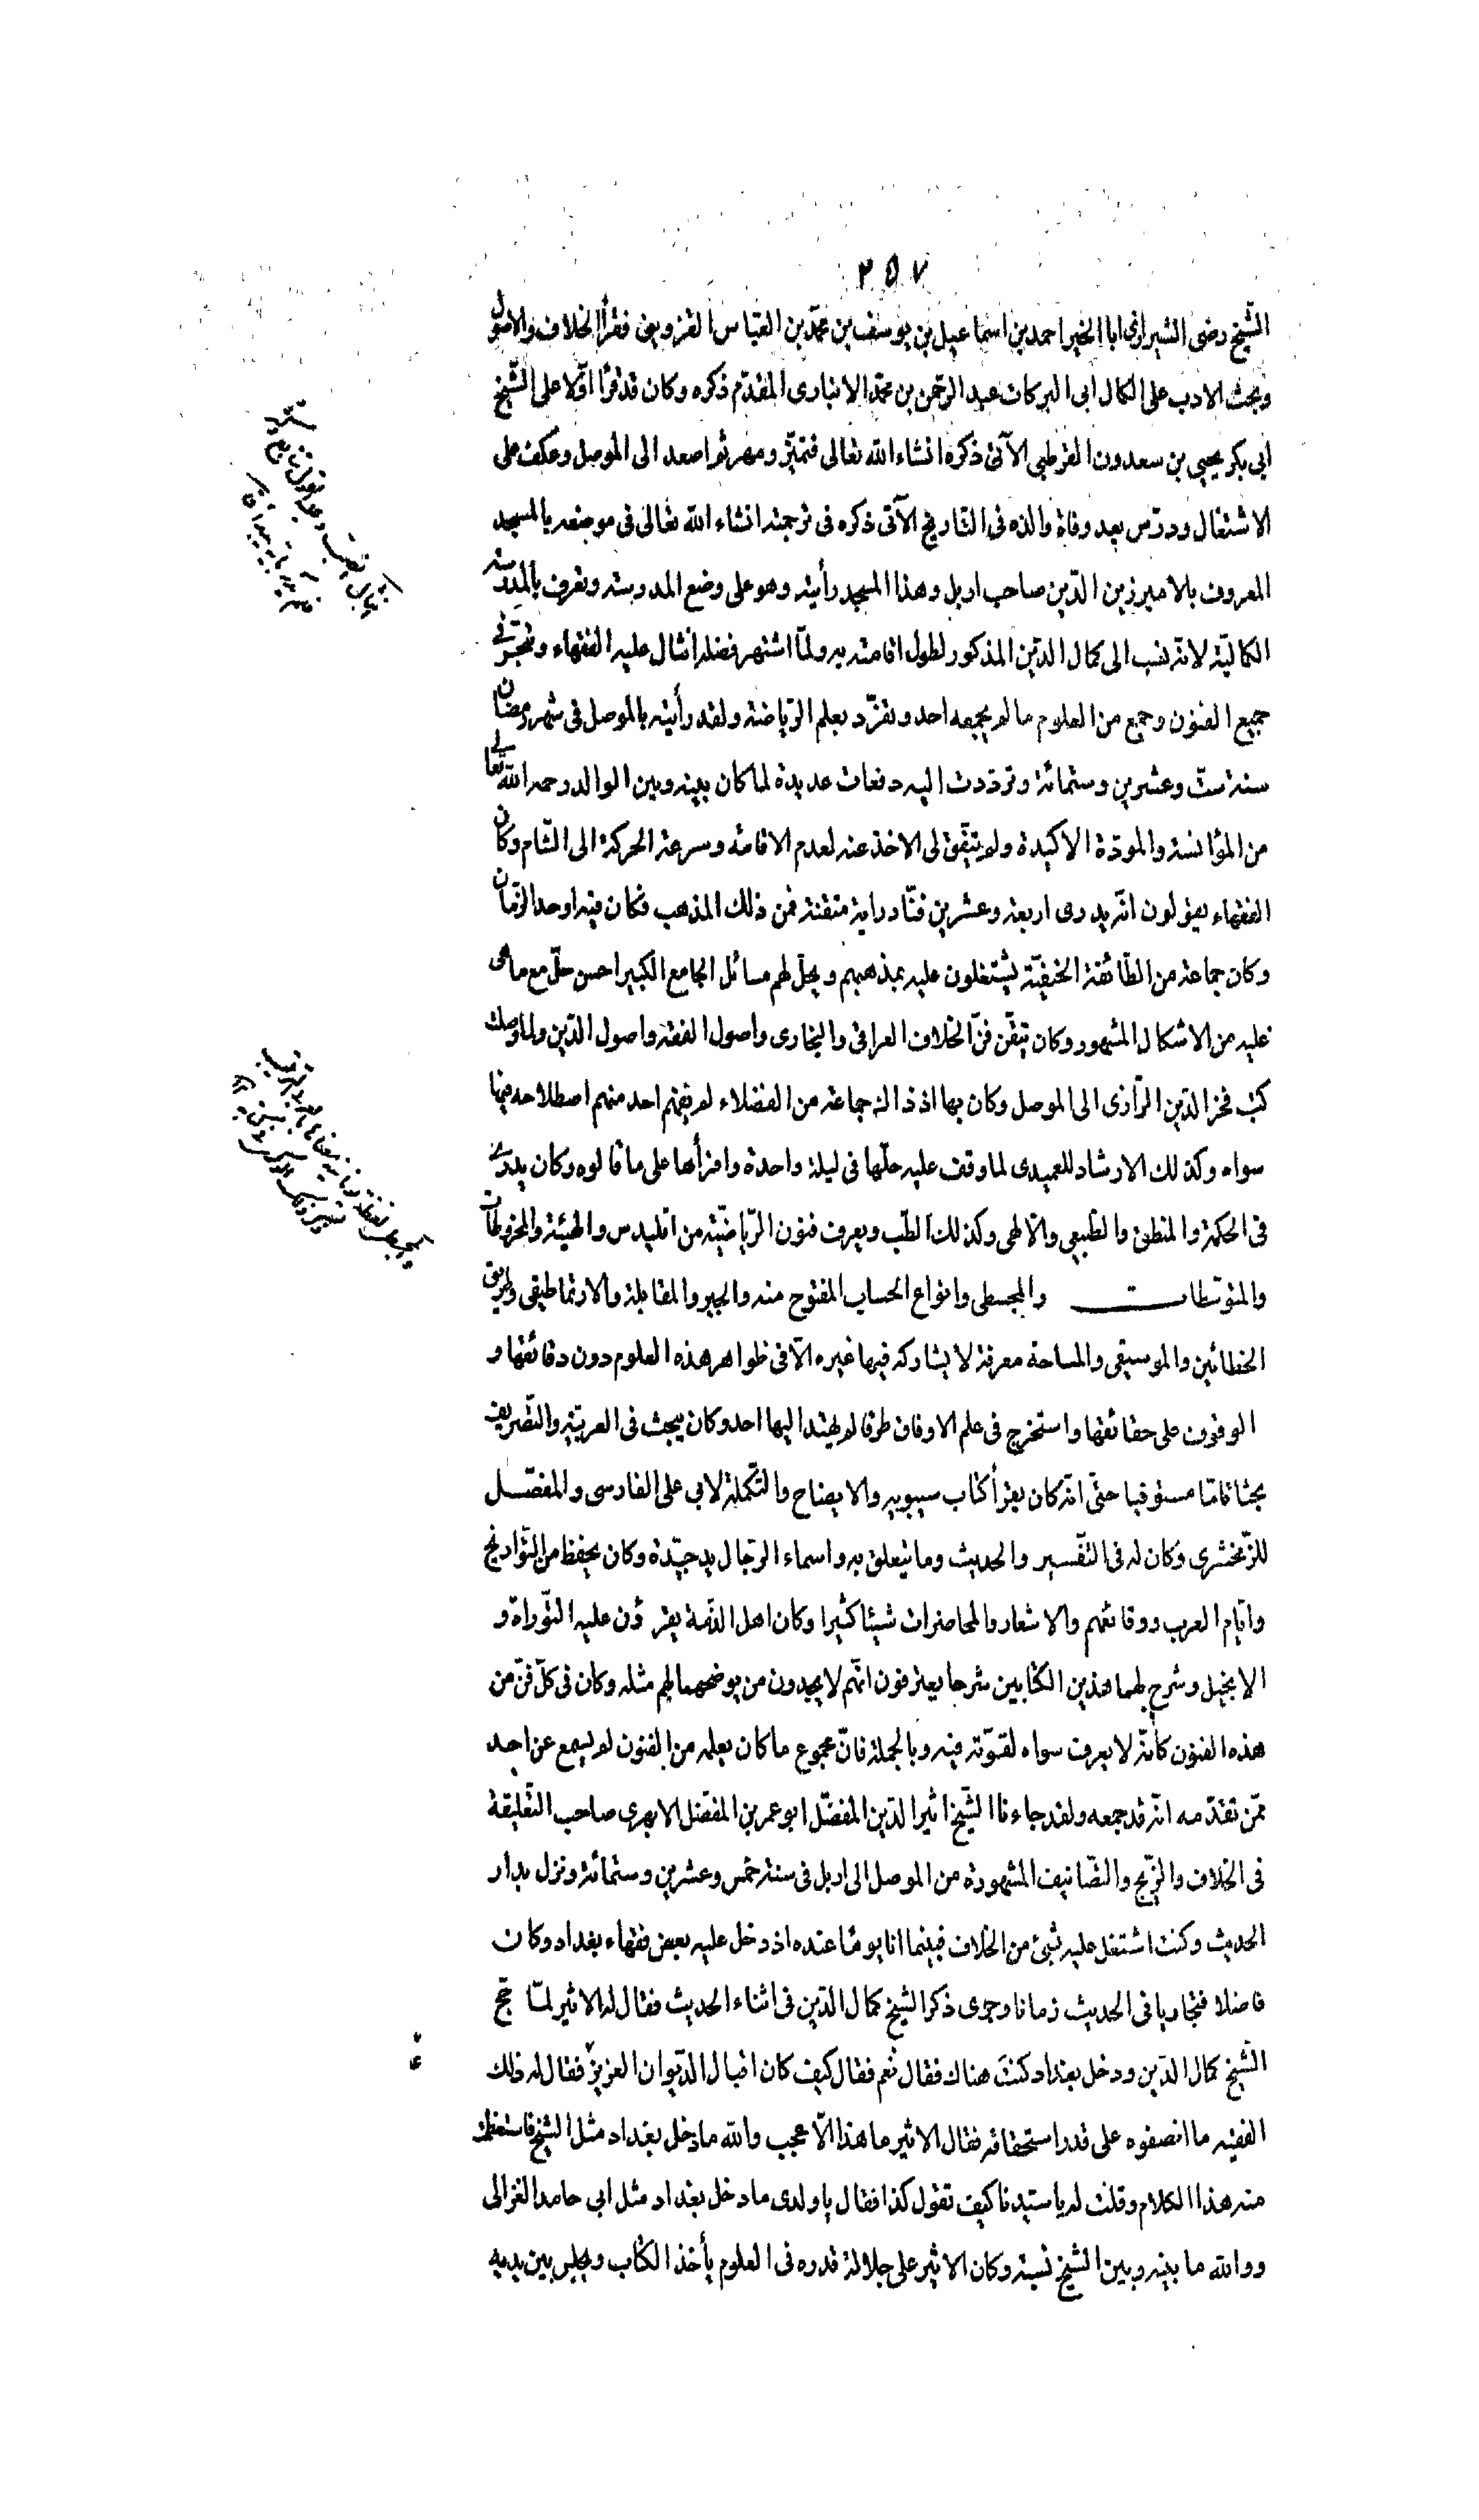 ٢٥٧
الشّيخ رضى الشيرازى ابا الخير احمد بن اسماعيل بن يوسف بن محمّد بن العبّاس القزوينى فقرأ الخلاف والاصول
وبحث الادب على الكمال ابى البركات عبد الرّحمن بن محمّد الانبارى المقدّم ذكره وكان قد قرأ اوّلا على الشّيخ
ابى بكر يحيى بن سعدون القرطبى الآتى ذكره انشاء الله تعالى فتميّز ومهر ثم اصعد الى الموصل وعكف على
الاشتغال ودرّس بعد وفاة والده فى التاريخ الآتى ذكره فى ترجمته انشاء الله تعالى فى موضعه بالمسجد
المعروف بالامير زين الدّين صاحب اربل وهذا المسجد رأيته وهو على وضع المدرسة وتعرف بالمدرسة
الكماليّة لانه نسب الى كمال الدّين المذكور لطول اقامته به ولمّا اشتهر فضله انثال عليه الفقهاء وتبحّر فى
جميع الفنون وجمع من العلوم ما لم يجمعه احد وتفرّد بعلم الرّياضة ولقد رأيته بالموصل فى شهر رمضان
سنة ستّ وعشرين وستمائة وتردّدت اليه دفعات عديدة لما كان بينه وبين الوالد رحمه الله تعالى
من المؤانسة والمودّة الاكيدة ولم يتفق لى الاخذ عنه لعدم الاقامة وسرعة الحركة الى الشام وكان
الفقهاء يقولون انه يدرى اربعة وعشرين فنّا دراية متقنة فمن ذلك المذهب فكان فيه اوحد الزّمان
وكان جماعة من الطّائفة الحنفيّة يشتغلون عليه بمذهبهم ويحلّ لهم مسائل الجامع الكبير احسن حلّ مع ما هى
عليه من الاشكال المشهور وكان يتقن فنّ الخلاف العراقى والبخارى واصول الفقه واصول الدّين ولما وصلت
كتب فخر الدّين الرّازى الى الموصل وكان بها اذ ذاك جماعة من الفضلاء لم يفهم احد منهم اصطلاحه فيها
سواه وكذلك الارشاد للعميدى لما وقف عليه حلّها فى ليلة واحدة واقرأها على ما قالوه وكان يدرى
فى الحكمة والمنطق والطبيعى والالهى وكذلك الطّب ويعرف فنون الرّياضيّة من اقليدس والهيئة والمخروطات
والمتوسّطات والمجسطى وانواع الحساب المفتوح منه والجبر والمقابلة والارثماطيقى وطريق
الخطائين والموسيقى والمساحة معرفة لا يشاركه فيها غيره الّا فى ظواهر هذه العلوم دون دقائقها و
الوقوف على حقائقها واستخرج فى علم الاوفاق طرقا لم يهتد اليها احد وكان يبحث فى العربيّة والتّصريف
بحثا تامّا مستوفيا حتّى انه كان يقرأ كتاب سيبويه والايضاح والتّكملة لابى على الفارسى والمفصّل
للزّمخشرى وكان له فى التّفسير والحديث وما يتعلق به واسماء الرّجال يد جيّدة وكان يحفظ من التّواريخ
وايّام العرب ووقائعهم والاشعار والمحاضرات شيئا كثيرا وكان اهل الذّمة يقرؤن عليه التّوراة و
الانجيل وشرح لهما هذين الكتابين شرحا يعترفون انّهم لا يجدون من يوضحهما لهم مثله وكان فى كلّ فنّ من
هذه الفنون كانّه لا يعرف سواه لقوّته فيه وبالجملة فانّ مجموع ما كان يعلمه من الفنون لم يسمع عن احد
ممّن تقدّمه انّه قد جمعه ولقد جاءنا الشّيخ اثير الدّين المفضّل ابو عمر بن المفضل الابهرى صاحب التعليقة
فى الخلاف والزّيج والتّصانيف المشهورة من الموصل الى اربل فى سنة خمس وعشرين وستمائة ونزل بدار
الحديث وكنت اشتغل عليه بشئ من الخلاف فبينما انا يومًا عنده اذ دخل عليه بعض فقهاء بغداد وكان
فاضلا فتجاريا فى الحديث زمانا وجرى ذكر الشّيخ كمال الدّين فى اثناء الحديث فقال له الاثير لمّا حجّ
الشّيخ كمال الدّين ودخل بغداد كنت هناك فقال نعم فقال كيف كان اقبال الدّيوان العزيز فقال له ذلك
الفقيه ما انصفوه على قدر استحقاقه فقال الاثير ما هذا الّا عجب والله ما دخل بغداد مثل الشّيخ فاستعظمت
منه هذا الكلام وقلت له يا سيّدنا كيف تقول كذا فقال يا ولدى ما دخل بغداد مثل ابى حامد الغزالى
ووالله ما بينه وبين الشّيخ نسبة وكان الاثير على جلالة قدره فى العلوم يأخذ الكتاب ويجلس بين يديه